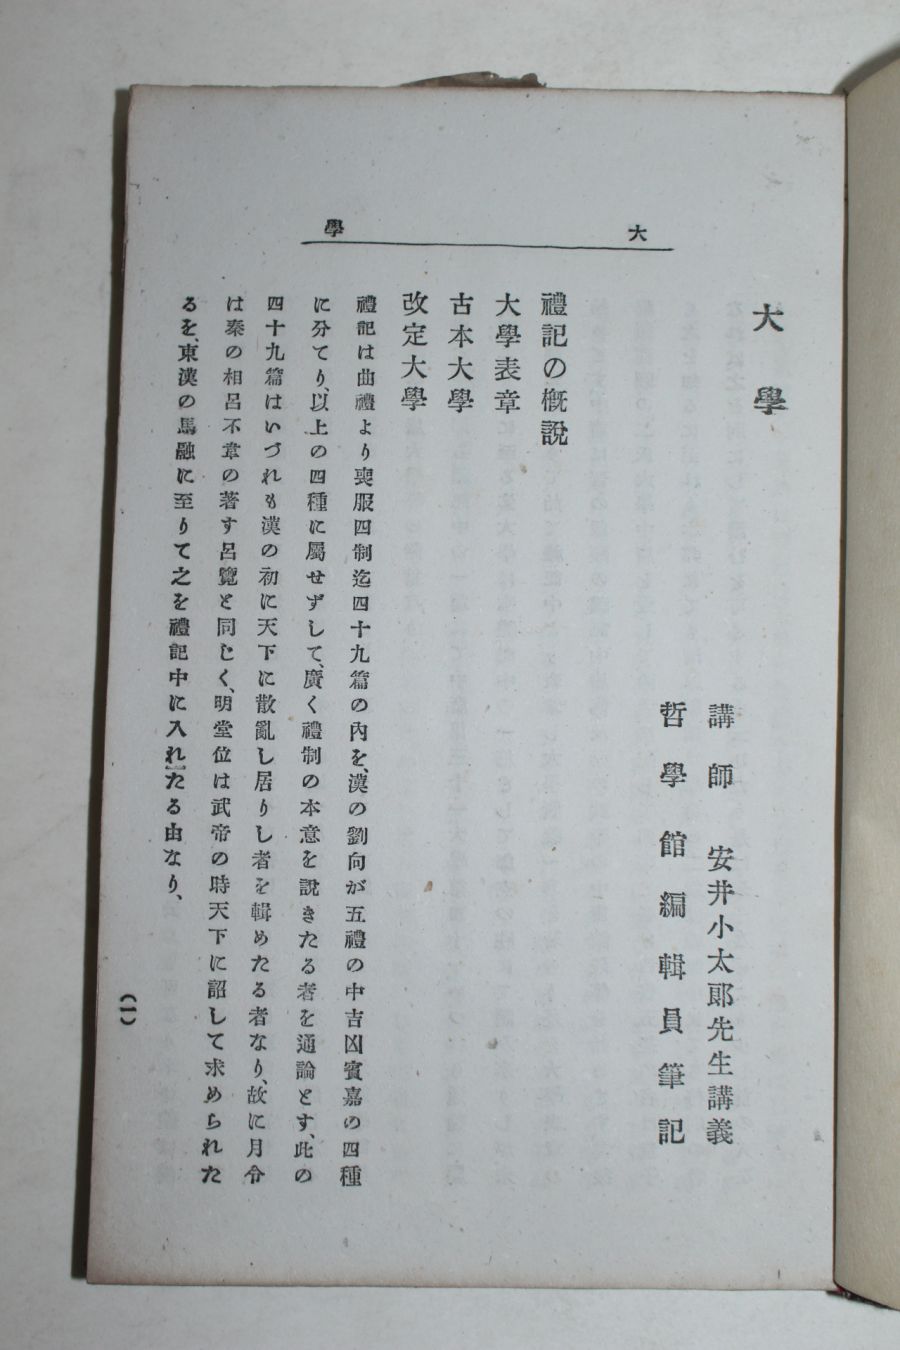 大學
大學
講師 安井小太郞先生講義
哲學館編輯員筆記
禮記の槪說
大學表章
古本大學
改定大學
禮記は曲禮より喪服四制迄四十九篇の內を、漢の劉向が五禮の中吉凶賓嘉の四種
に分てり、以上の四種に屬せずして、廣く禮制の本意を說きたる者を通論とす、此の
四十九篇はいづれも漢の初に天下に散亂し居りし者を輯めたる者なり、故に月令
は秦の相呂不韋の著す呂覽と同じく、明堂位は武帝の時天下に詔して求められた
るを、東漢の馬融に至りて之を禮記中に入れたる由なり、
(一)